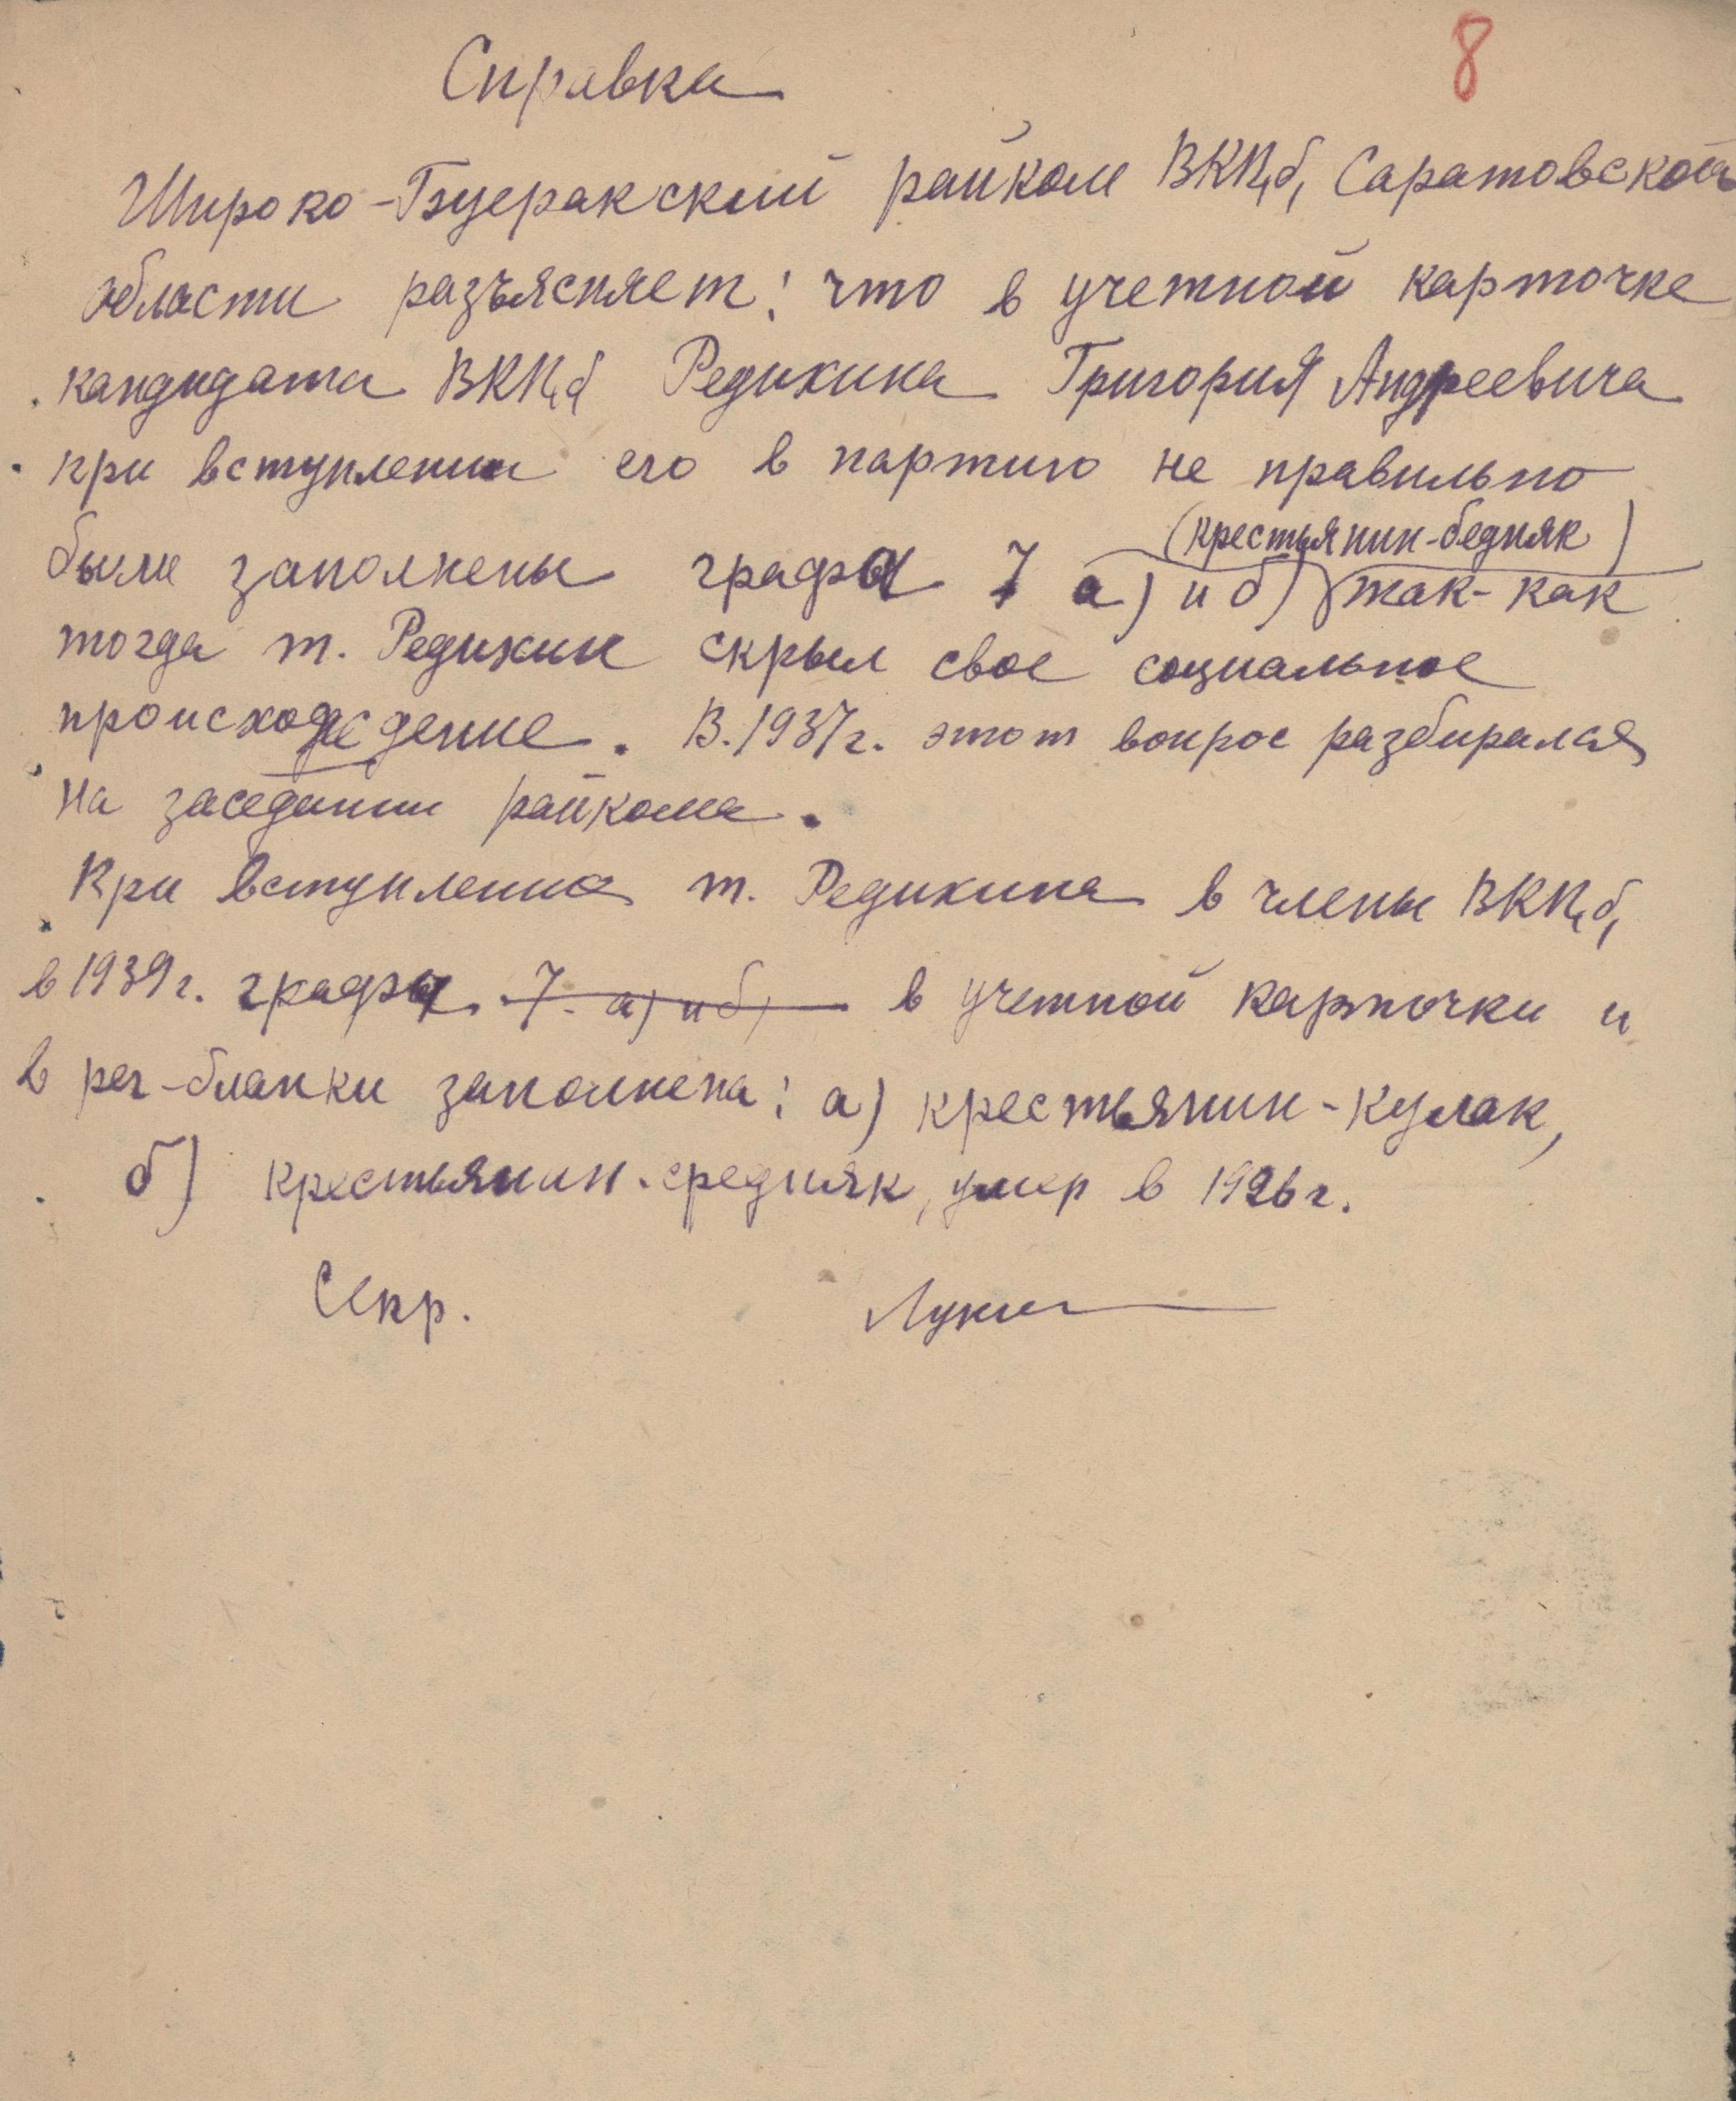 8
Справка
Широко-Буеракский райком ВКП(б) Саратовской
области разъясняет: что в учетной карточке
кандидата ВКП(б Редихина Григория Андреевича
при вступлении его в партию не правильно
(крестьянин-бедняк)
были заполнены графы 7 а) и б) так-как
тогда т. Редихин скрыл свое социальное
происхождение. В.1937г. этот вопрос разбирался
на заседании райкома.
При вступлении т. Редихина в члены ВКП(б)
в 1939г. графы 7. а) и б) в учетной карточки и
в рег-бланки заполнена: а) крестьянин-кулак,
б) крестьянин-средняк, умер в 1926г.
Секр. Лукин